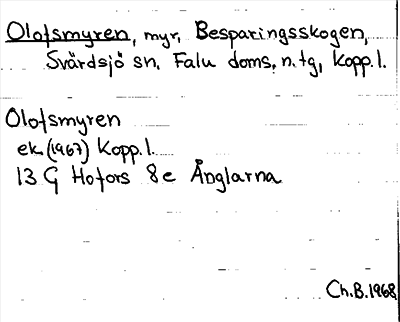 Olofsmyren, myr, Besparingsskogen,
Svärdsjö sn, Falu doms. n. tg, Kopp. l.
Olofsmyren
ek. (1967) Kopp. l.
13 G Hofors 8e Änglarna
Ch.B.1968